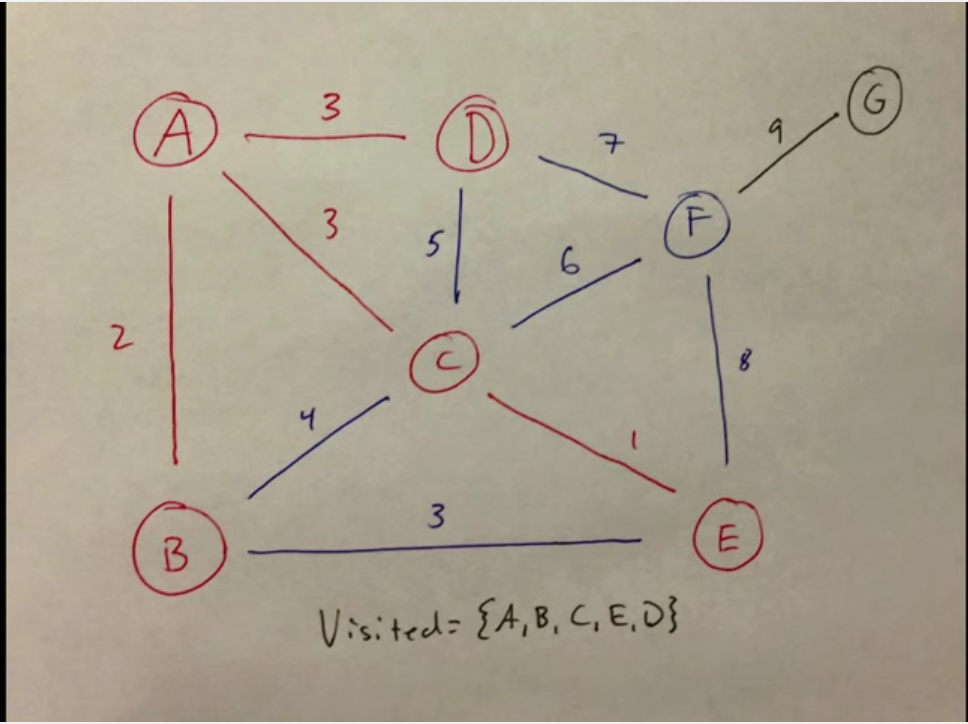 A
3
D
7
9
G
F
3
5
6
2
C
8
4
1
3
B
E
Visited= {A, B, C, E, D}